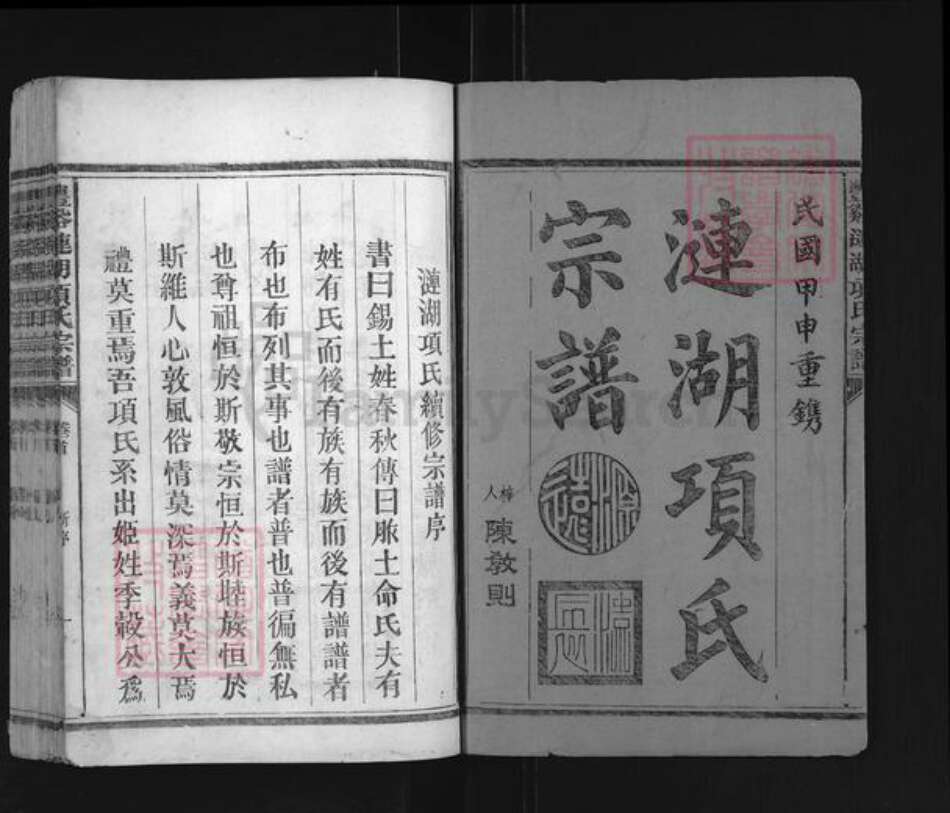 民國甲申重鐫
漣湖項氏
宗譜
梓人
陳敦則
漣湖項氏續修宗譜序
書曰錫土姓春秋傳曰胙土命氏夫有
姓有氏而後有族有族而後有譜譜者
布也布列其事也譜者普也普徧無私
也尊祖恒於斯敬宗恒於斯睦族恒於
斯維人心敦風俗情莫深焉義莫大焉
禮莫重焉吾項氏系出姬姓季轂公爲
漣湖項氏宗譜
卷首
新序
一